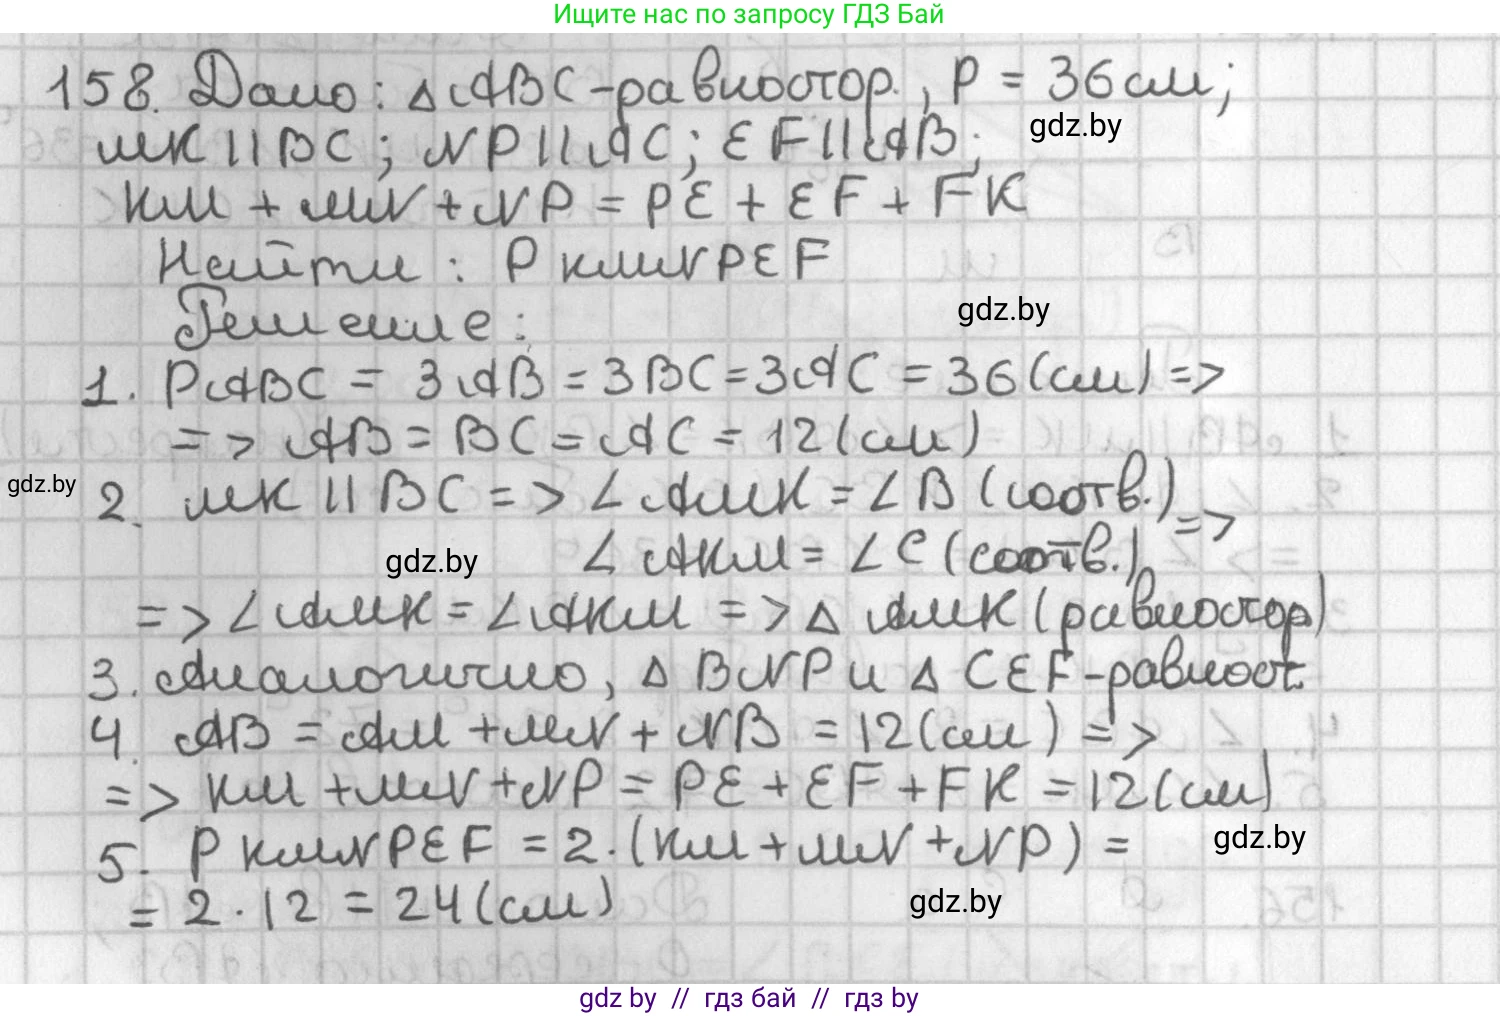 Ищите нас по запросу ГДЗ Бай
158. Дано: △ABC-равностор., P = 36 см;
MK || BC; NP || AC; EF || AB;
gdz.by
KM + MN + NP = PE + EF + FK
Найти: P KMNPEF
Решение:
gdz.by
1. PABC = 3AB = 3BC = 3AC = 36 (см) =>
=> AB = BC = AC = 12 (см)
gdz.by
2. MK || BC => ∠AMK = ∠B (соотв.)
∠AKM = ∠C (соотв.) =>
gdz.by
=> ∠AMK = ∠AKM => △ AMK (равностор)
3. Аналогично, △ BNP и △ CEF-равност.
4. AB = AM + MN + NB = 12 (см) =>
=> KM + MN + NP = PE + EF + FK = 12 (см)
5. P KMNPEF = 2 · (KM + MN + NP) =
gdz.by
= 2 · 12 = 24 (см)
gdz.by
gdz by // гдз бай // гдз by